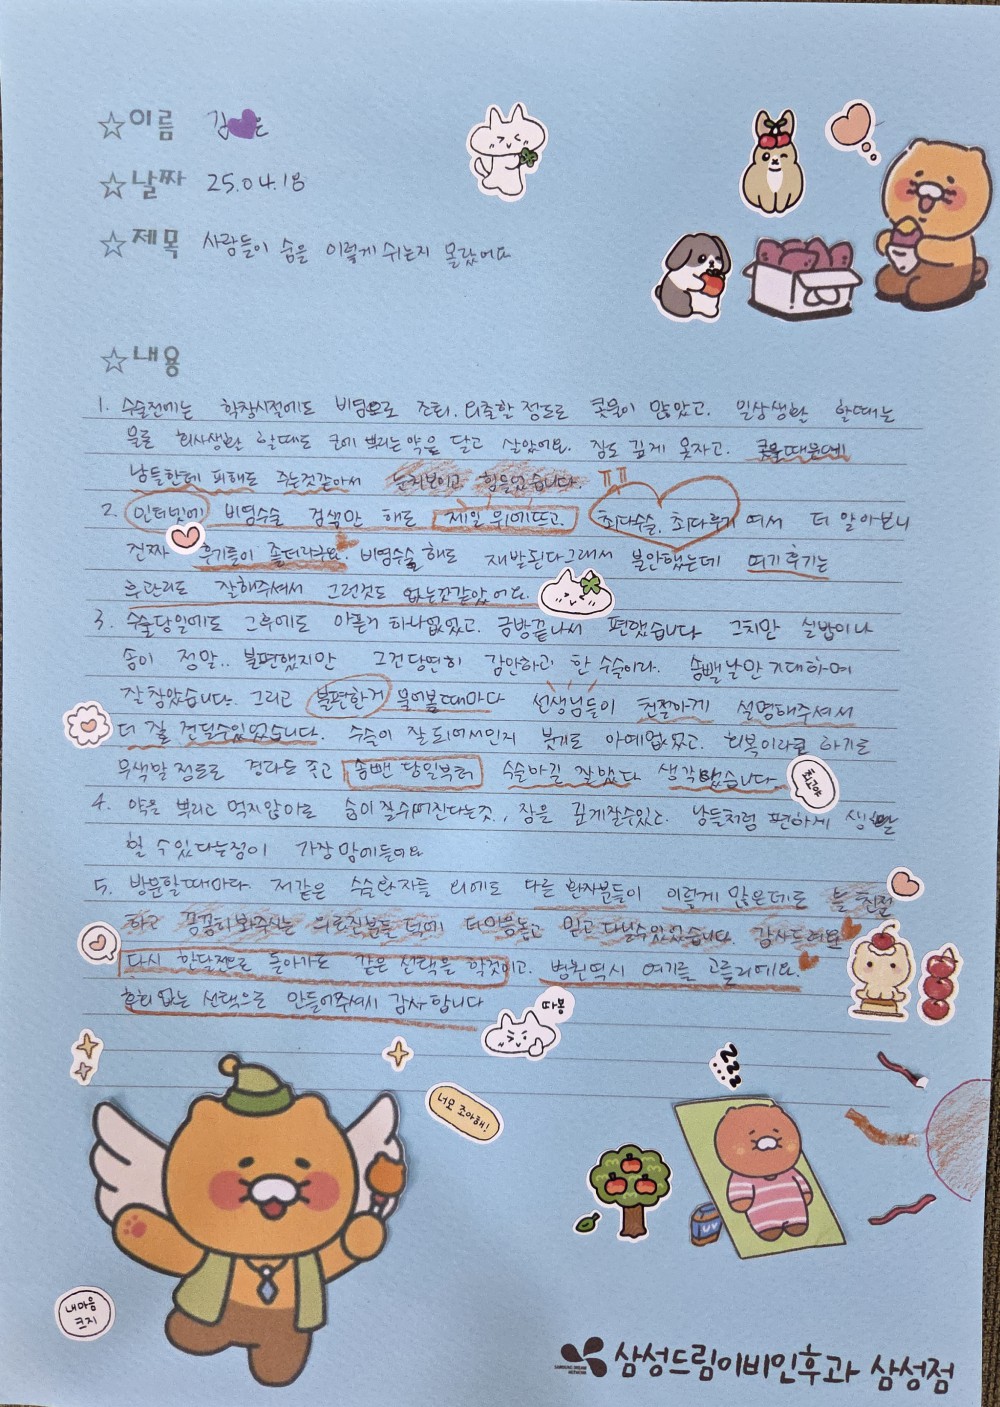 ☆이름 김♥은
☆날짜 25.04.18
☆제목 사람들이 숨을 이렇게 쉬는지 몰랐어요
☆내용
1. 수술전에는 학창시절에도 비염으로 조퇴, 외출할 정도로 콧물이 많았고. 일상생활 할때는
물론 회사생활 할때도 코에 뿌리는약을 달고 살았어요. 잠도 깊게 못자고. 콧물때문에
남들한테 피해도 주는것같아서 눈치보이고 힘들었습니다. ㅠㅠ
2. 인터넷에 비염수술 검색만 해도 제일 위에뜨고. 최다수술, 최다후기 여서 더 알아보니
진짜 후기들이 좋더라구요. 비염수술 해도 재발된다그래서 불안했는데 여기후기는
후관리도 잘해주셔서 그런것도 없는것같았어요.
3. 수술당일에도 그후에도 아픈거 하나없었고. 금방끝나서 편했습니다 그치만 실밥이나
솜이 정말.. 불편했지만 그건당연히 감안하고 한 수술이라. 솜뺄날만 기대하며
잘참았습니다. 그리고 불편한거 물어볼때마다 선생님들이 친절하게 설명해주셔서
더 잘 견딜수있었습니다. 수술이 잘되어서인지 붓기도 아예없었고. 회복이라고 하기도
무색할 정도로 경과도 좋고 솜뺀 당일부터 수술하길 잘했다 생각했습니다.
최고야
4. 약을 뿌리고 먹지않아도 숨이 잘쉬어진다는것, 잠을 깊게잘수있고. 남들처럼 편하게 생활
할 수 있다는점이 가장 맘에들어요
5. 방문할때마다 저같은 수술환자들 외에도 다른 환자분들이 이렇게 많은데도 늘 친절
하고 꼼꼼히봐주시는 의료진분들 덕에 더마음놓고 믿고 다닐수있었습니다. 감사드려요
다시 한달전으로 돌아가도 같은 선택을 할것이고. 병원역시 여기를 고를거에요.
후회 없는 선택으로 만들어주셔서 감사합니다
따봉
zzz
너모 조아해!
UV
내마음
크지
SAMSUNG DREAM
NETWORK
삼성드림이비인후과 삼성점